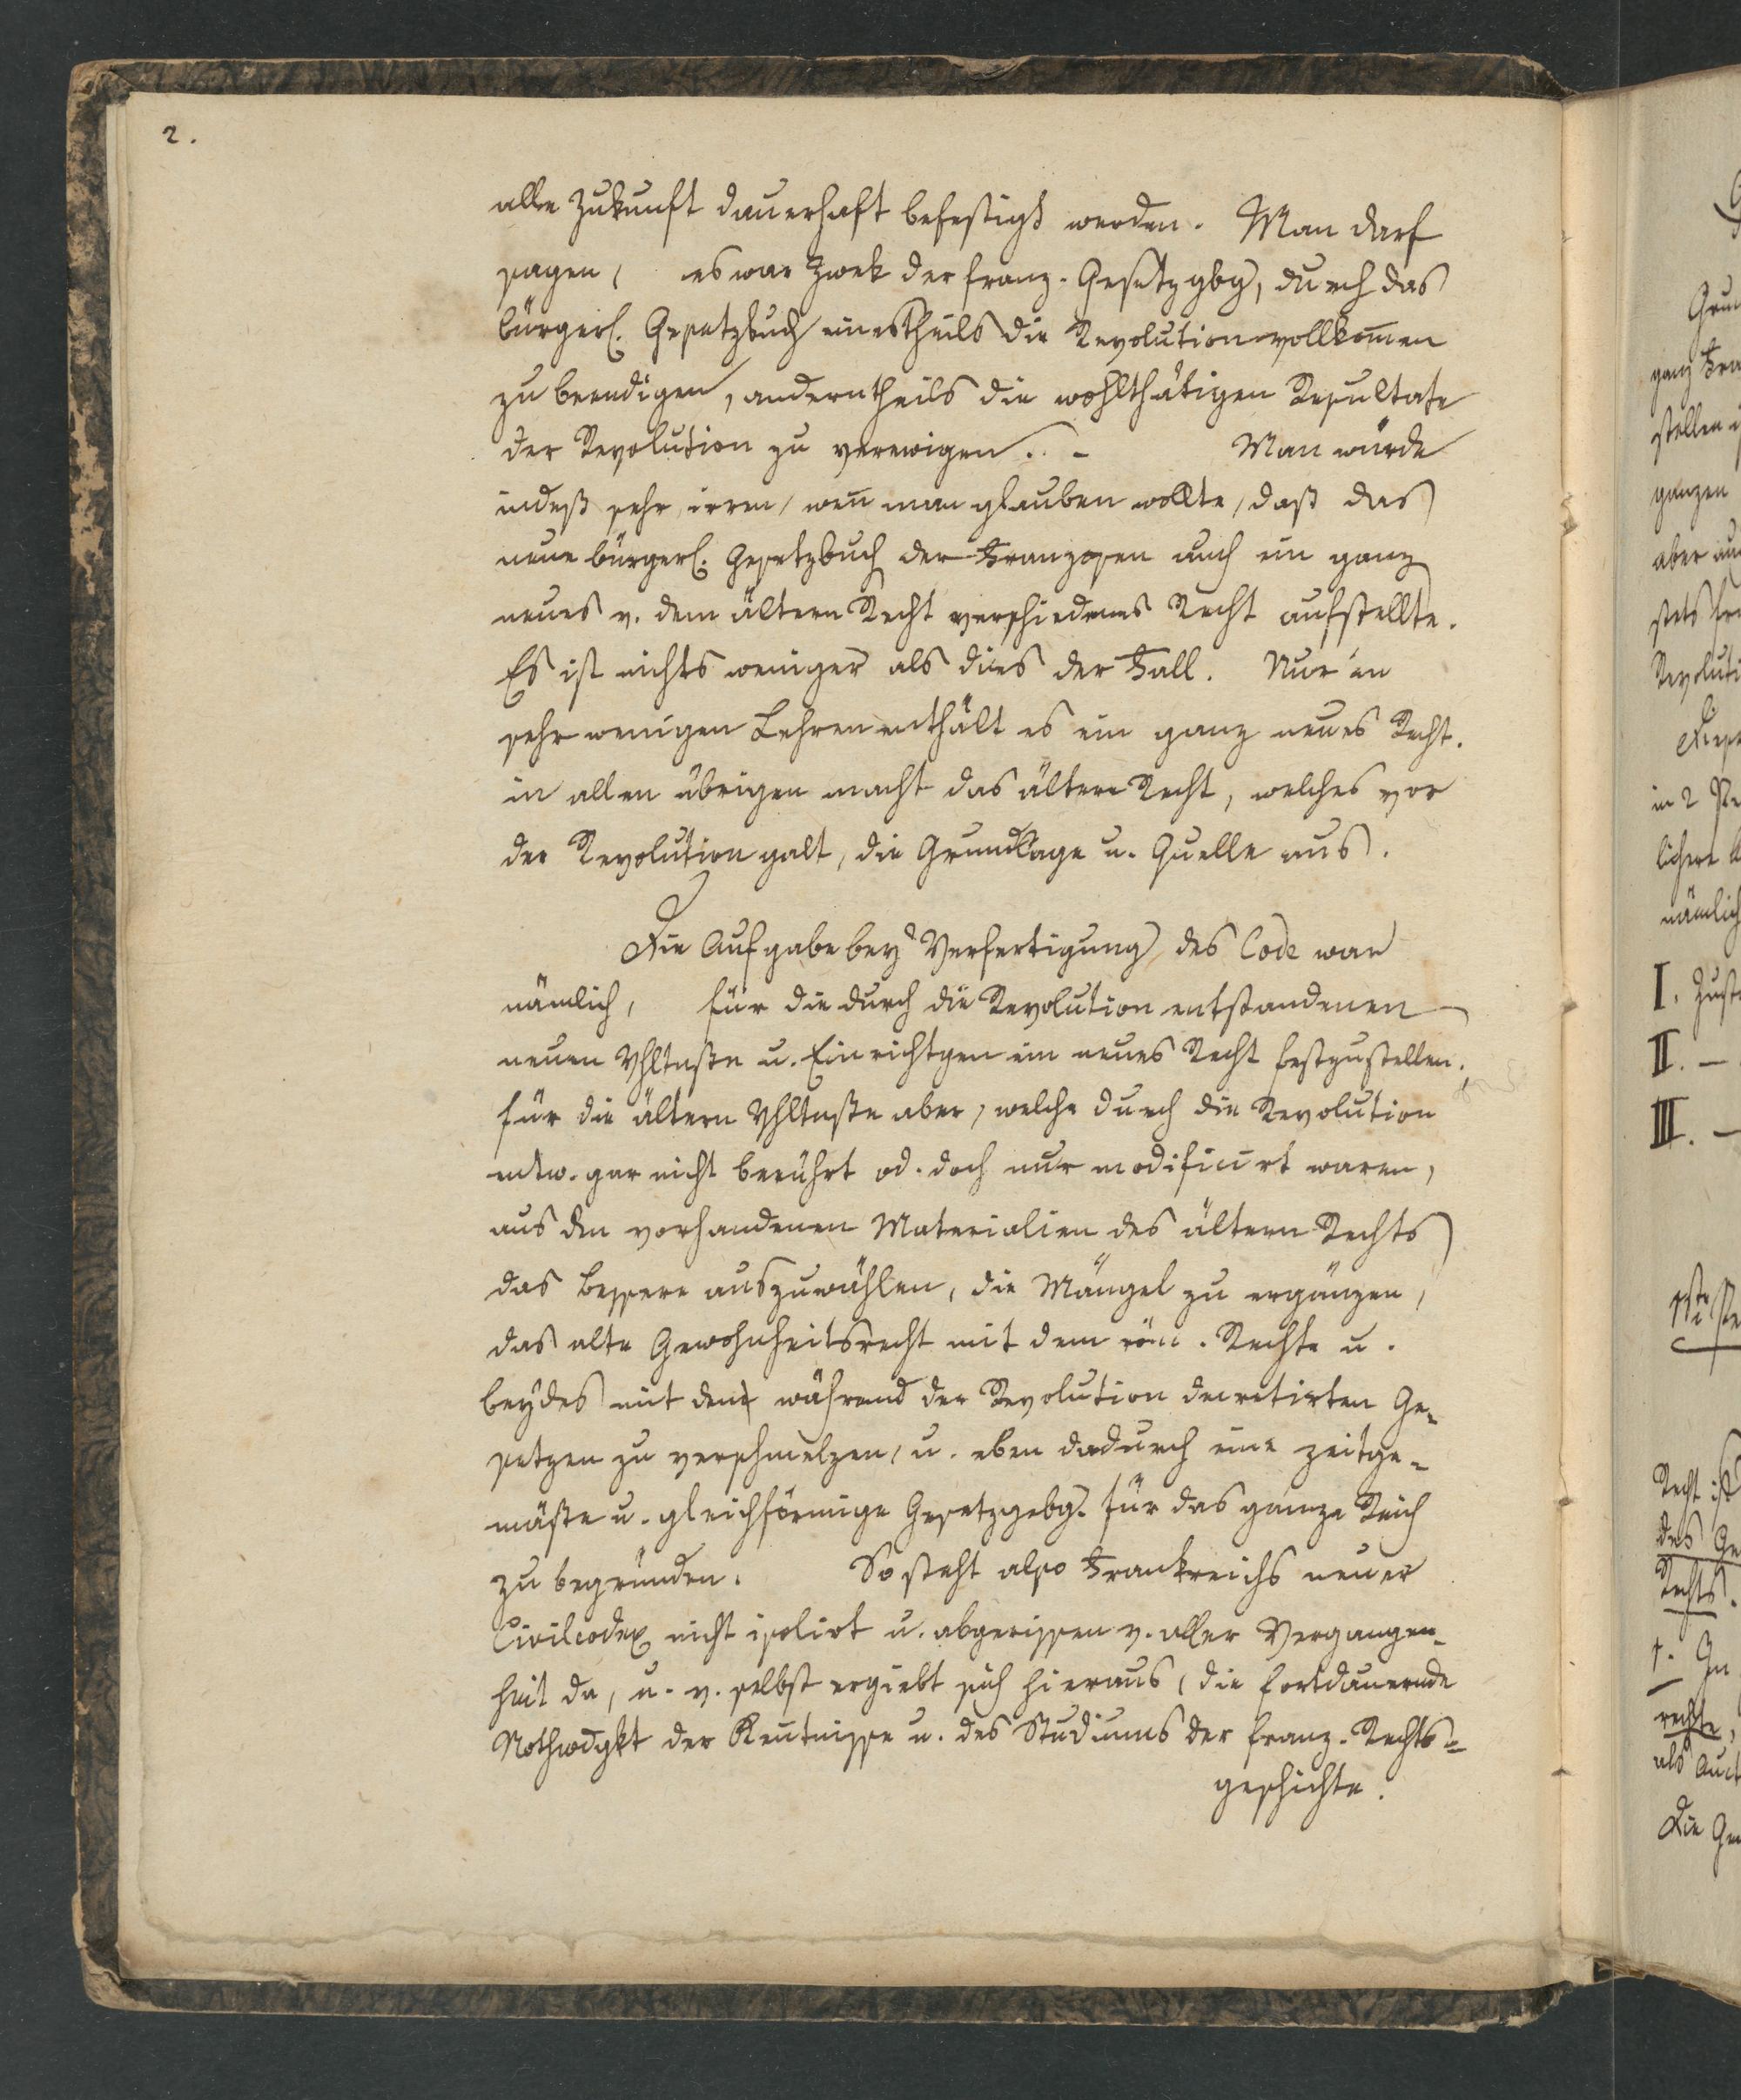 2.
alle Zukunft dauerhaft befestigt werden. Man darf
sagen, es war Zwek der franz. Gesetzgbg, durch das
bürgerl. Gesetzbuch einestheils die Revolution vollkom̄en
zu beendigen, anderntheils die wohlthätigen Resultate
der Revolution zu verewigen. – Man würde
indeß sehr irren, wen̄ man glauben wollte, daß das
neue bürgerl. Gesetzbuch der Franzosen auch ein ganz
neues v. dem ältern Recht verschiedenes Recht aufstellte.
Es ist nichts weniger als dies der Fall. Nur in
sehr wenigen Lehren enthält es ein ganz neues Recht.
in allen übrigen macht das ältere Recht, welches vor
der Revolution galt, die Grundlage u. Quelle aus.
Die Aufgabe bey Verfertigung des Code war
nämlich, für die durch die Revolution entstandenen
neuen Vhltnße u. Einrichtgen ein neues Recht festzustellen.
für die ältern Vhltnße aber, welche durch die Revolution
entw. gar nicht berührt od. doch nur modificirt waren,
aus den vorhandenen Materialien des ältern Rechts
das Bessere auszuwählen, die Mängel zu ergänzen,
das alte Gewohnheitsrecht mit dem röm. Rechte u.
beydes mit den während der Revolution decretirten Ge-
setzen zu verschmelzen, u. eben dadurch eine zeitge-
mäße u. gleichförmige Gesetzgebg. für das ganze Reich
zu begründen. So steht also Frankreichs neuer
Civilcodex nicht isolirt u. abgerissen v. aller Vergangen-
heit da, u. v. selbst ergiebt sich hieraus, die fortdauernde
Nothwdgkt der Ken̄tnisse u. des Studiums der franz. Rechts-
geschichte.
ganz
stellen
ganzen
aber
stets
in 2
nämlich
I.
II. –
III. –
Recht ist
des
Rechts.
1.
rechte,
als
Die